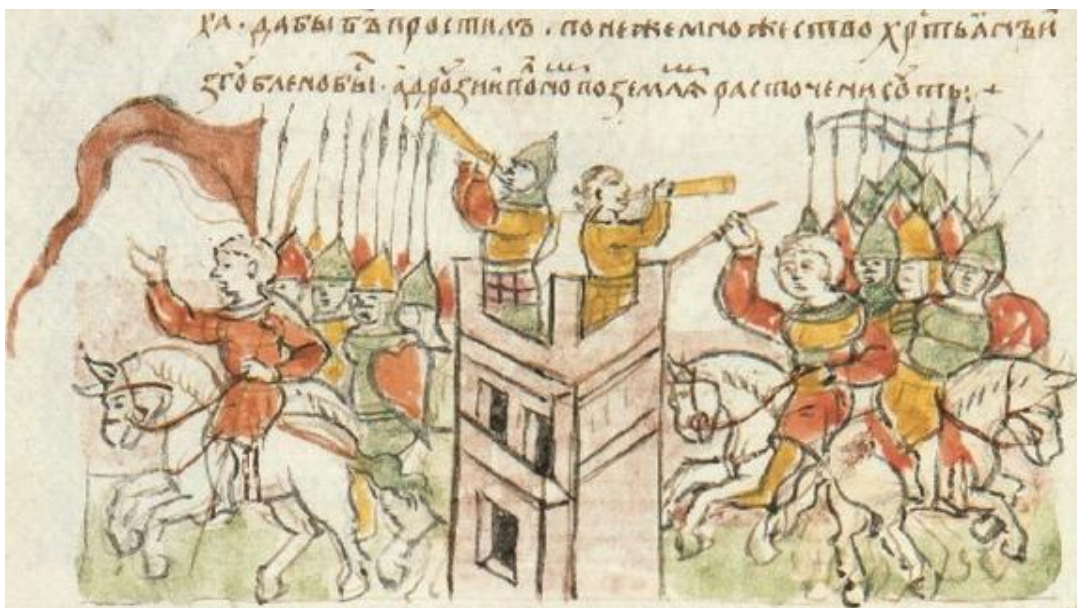 ха · дабы б҃ъ простилъ · понеже множество хрⷭ҇тьꙗнъ и
згꙋблено бы · а дрꙋзии по землѧ расточени сꙋть: +